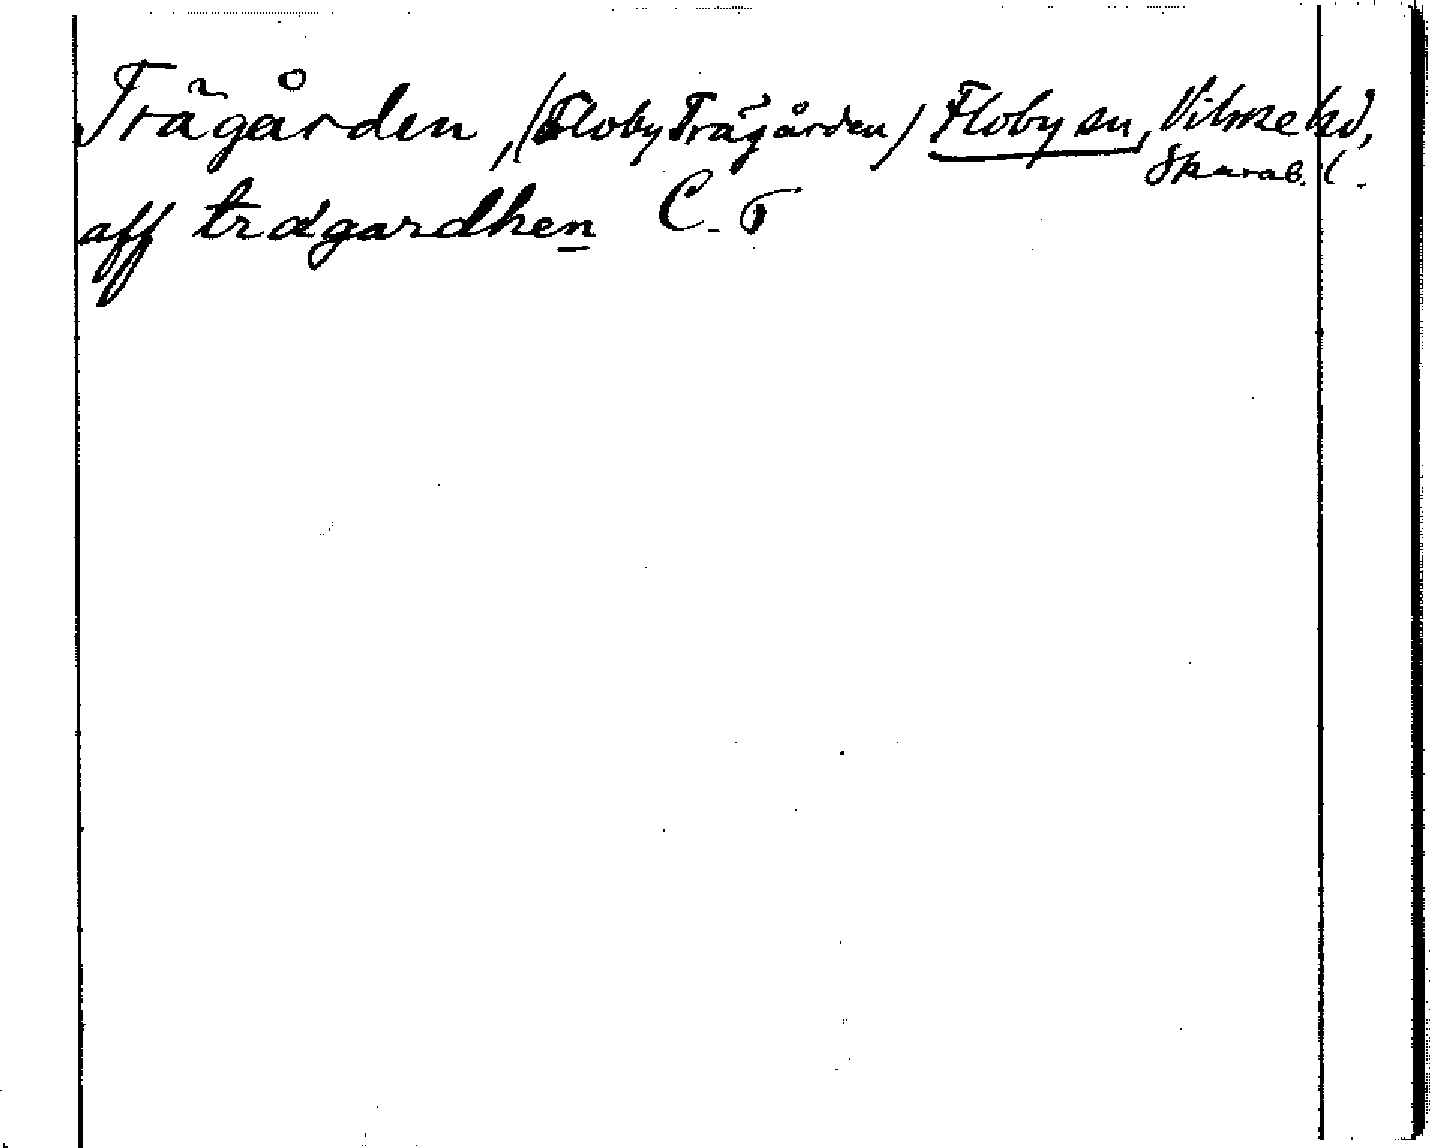 Trägården, (Floby Trägården) Floby sn, Vilske hd,
Skarab. l.
aff trægardhen C.